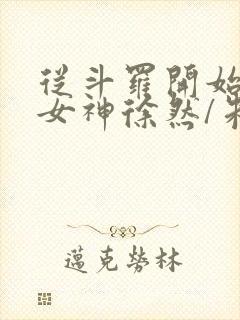 從斗羅開始
女神徐然/
邁克勞林